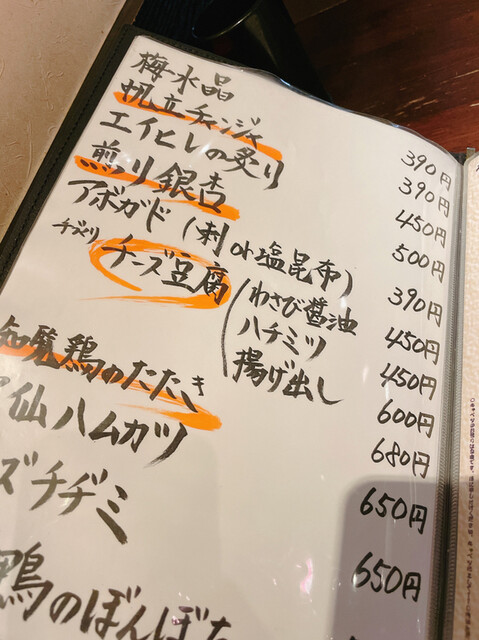 梅水晶 390円
帆立チャンジャ 390円
エイヒレの炙り 450円
煎り銀杏 500円
アボガド(刺or塩昆布) 390円
チーズ豆腐
わさび醤油 450円
ハチミツ 450円
揚げ出し 600円
知覧鶏のたたき 680円
仙ハムカツ 650円
ズチヂミ 650円
鴨のぼんぼち